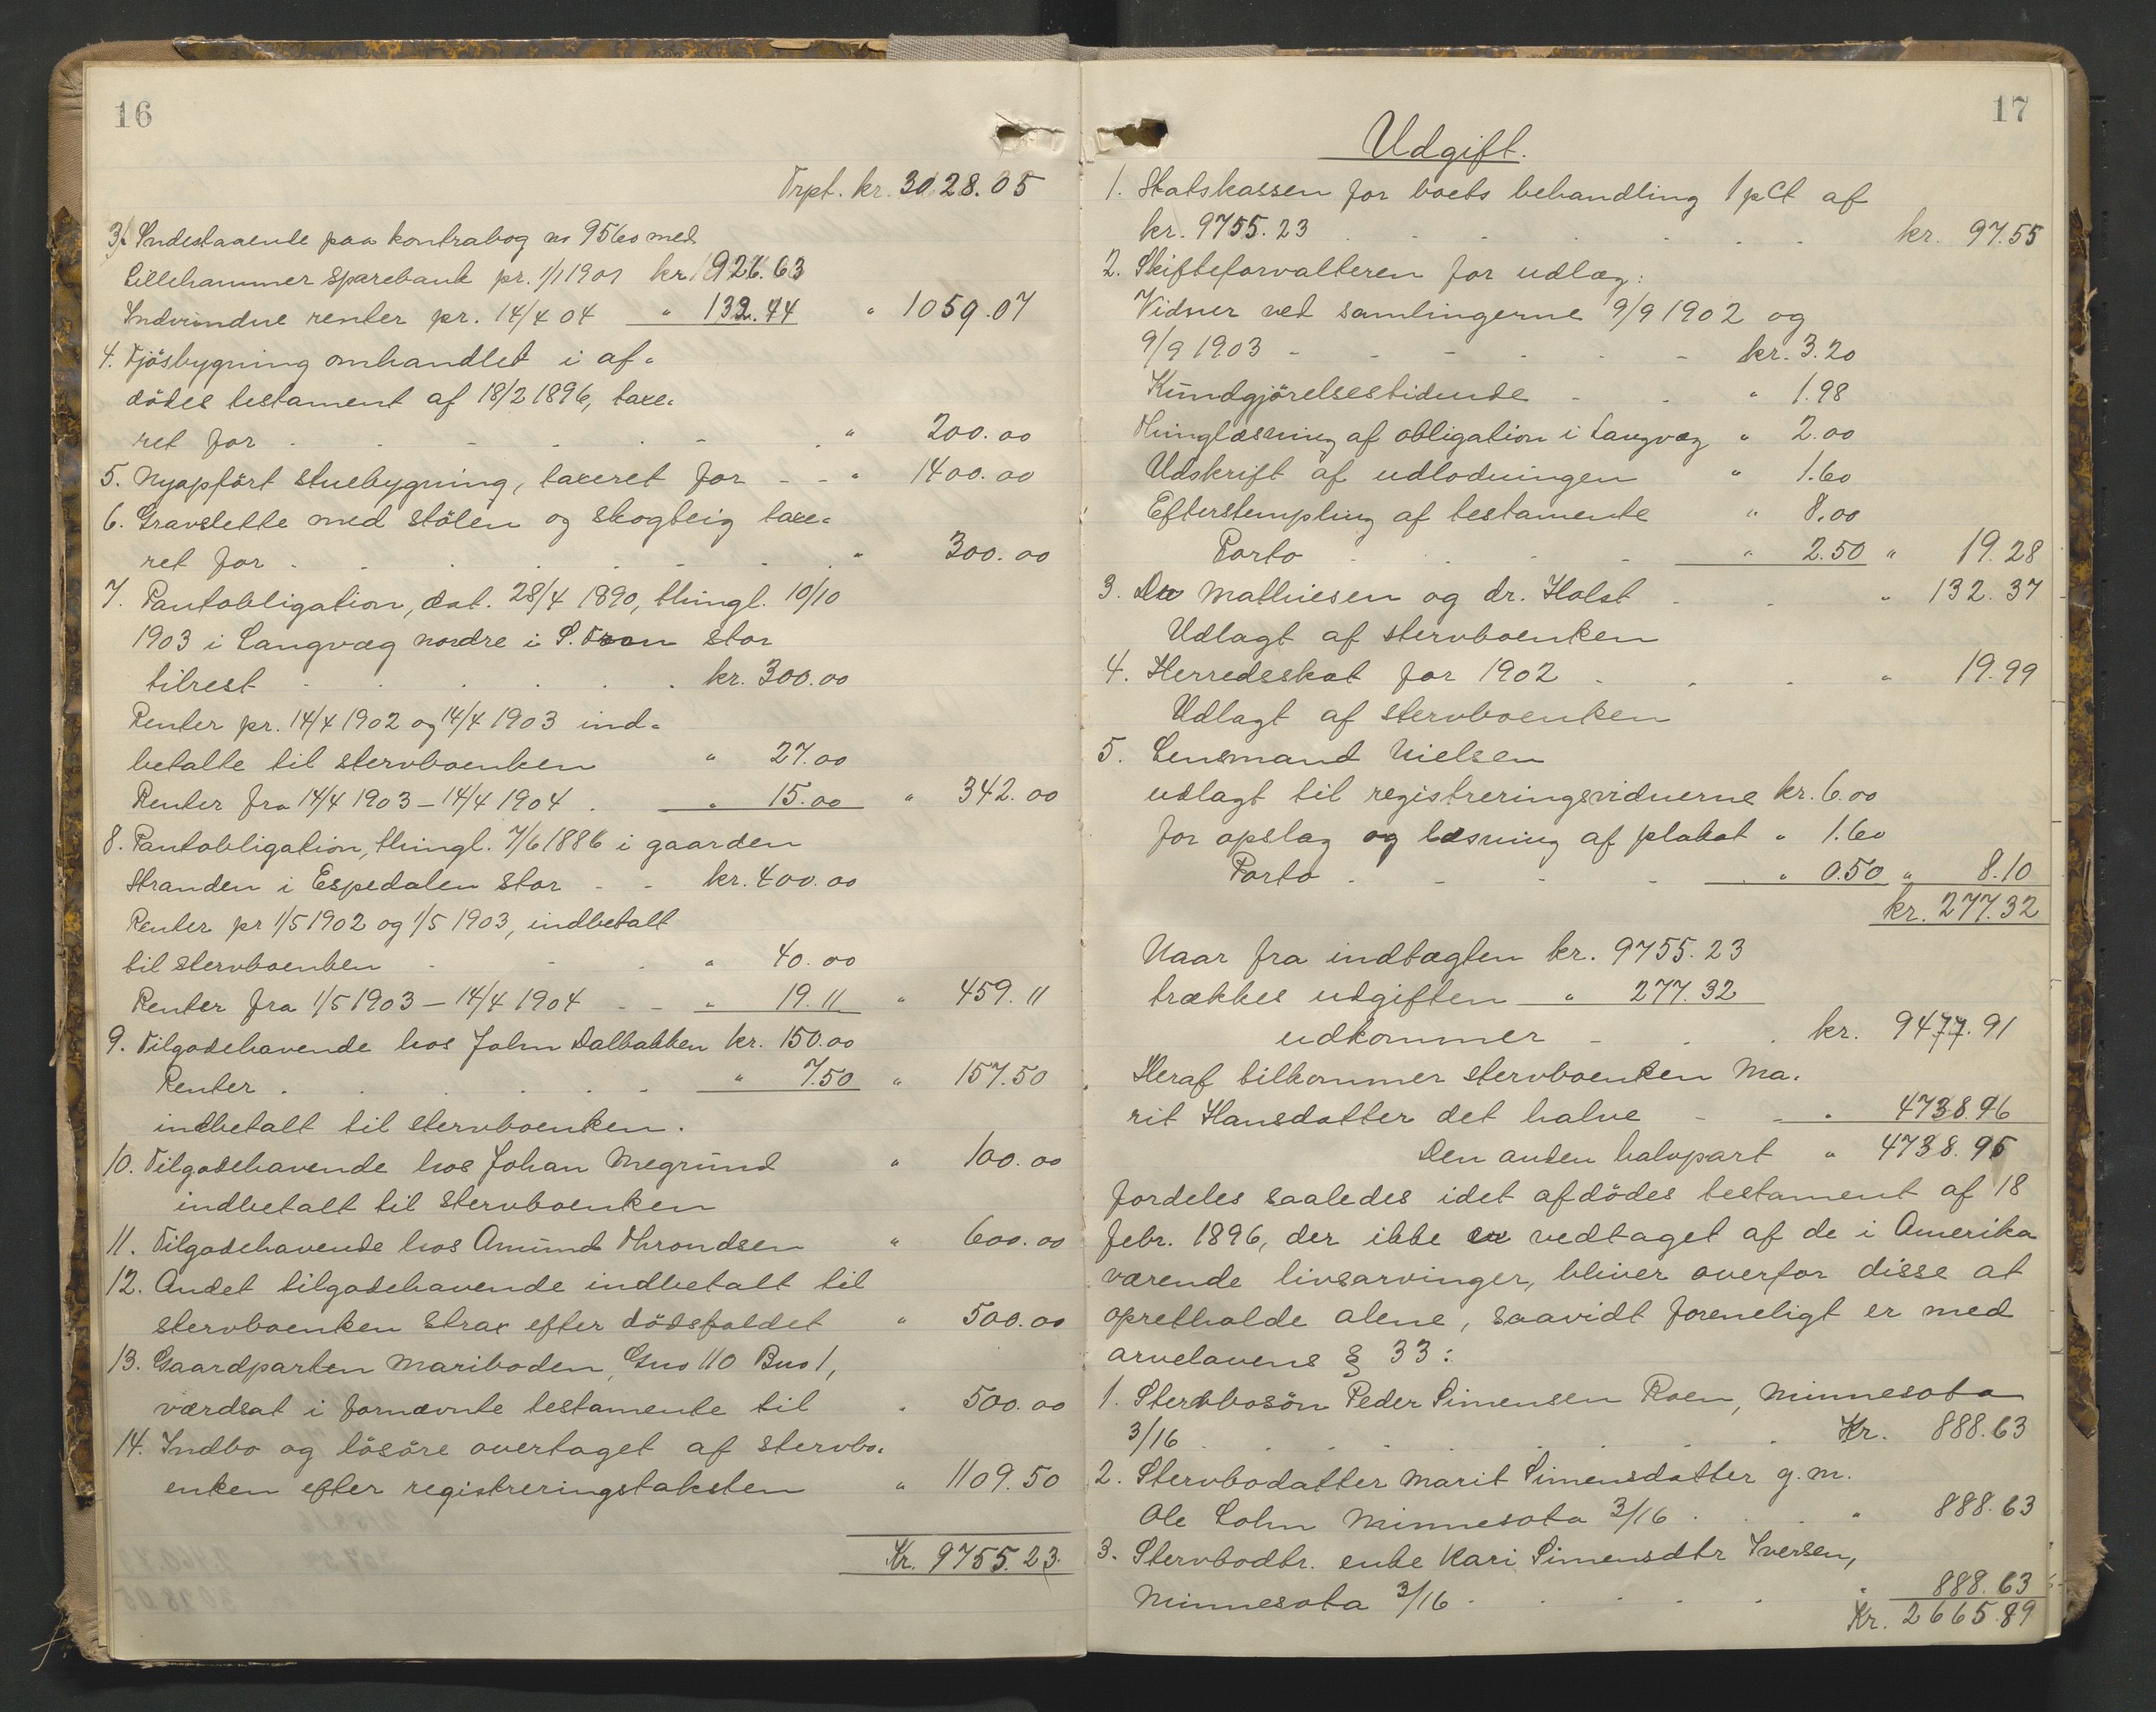 16
Trpt. kr. 3028.05
3. Indestaaende paa kontrabog no 9560 med
Lillehammer sparebank pr. 1/1 1901 kr. 926.63
Indvundne renter pr. 14/4 04 " 132.44 " 1059.07
4. Fjösbygning omhandlet i af-
dödes testament af 18/2 1896, taxe-
ret for " 200.00
5. Nyopfört stuebygning, taxeret for " 1400.00
6. Gravslette med stölen og skogteig taxe-
ret for " 300.00
7. Pantobligation, dat. 28/4 1890, thingl. 10/10
1903 i Langvæg nordre i S. Fron stor
tilrest kr. 300.00
Renter pr. 14/4 1902 og 14/4 1903 ind-
betalte til stervboenken " 27.00
Renter fra 14/4 1903 – 14/4 1904 " 15.00 " 342.00
8. Pantobligation, thingl. 7/6 1886 i gaarden
Stranden i Espedalen stor kr. 400.00
Renter pr 1/5 1902 og 1/5 1903, indbetalt
til stervboenken " 40.00
Renter fra 1/5 1903 – 14/4 1904 " 19.11 " 459.11
9. Tilgodehavende hos John Dalbakken kr. 150.00
Renter " 7.50 " 157.50
indbetalt til stervboenken.
10. Tilgodehavende hos Johan Megrund " 100.00
indbetalt til stervboenken
11. Tilgodehavende hos Amund Throndsen " 600.00
12. Andet tilgodehavende indbetalt til
stervboenken strax efter dödsfaldet " 500.00
13. Gaardparten Mariboden, Gno 110 Bno 1,
værdsat i fornævnte testamente til " 500.00
14. Indbo og lösöre overtaget af stervbo-
enken efter registreringstaksten " 1109.50
Kr. 9755.23.
17
Udgift.
1. Statskassen for boets behandling 1 pCt af
kr. 9755.23 kr. 97.55
2. Skifteforvalteren for udlæg:
Vidner ved samlingerne 9/9 1902 og
9/9 1903 kr. 3.20
Kundgjörelsestidende " 1.98
Thinglæsning af obligation i Langvæg " 2.00
Udskrift af udlodningen " 1.60
Efterstempling af testamente " 8.00
Porto " 2.50 " 19.28
3. Dr Mathiesen og dr. Holst " 132.37
Udlagt af stervboenken
4. Herredsskat for 1902 " 19.99
Udlagt af stervboenken
5. Lensmand Nielsen
udlagt til registreringsvidnerne kr. 6.00
for opslag og læsning af plakat " 1.60
Porto " 0.50 " 8.10
kr. 277.32
Naar fra indtægten kr. 9755.23
trækkes udgiften " 277.32
udkommer kr. 9477.91
Heraf tilkommer stervboenken Ma-
rit Hansdatter det halve " 4738.96
Den anden halvpart " 4738.95
fordeles saaledes idet afdödes testament af 18
febr. 1896, der ikke er vedtaget af de i Amerika
værende livsarvinger, bliver overfor disse at
opretholde alene, saavidt foreneligt er med
arvelovens § 33:
1. Stervbosön Peder Simensen Roen, Minnesota
3/16 Kr. 888.63
2. Stervbodatter Marit Simensdatter g. m.
Ole Lohn Minnesota 3/16 " 888.63
3. Stervbodtr. enke Kari Simensdtr Iversen,
Minnesota 3/16 " 888.63
Kr. 2665.89